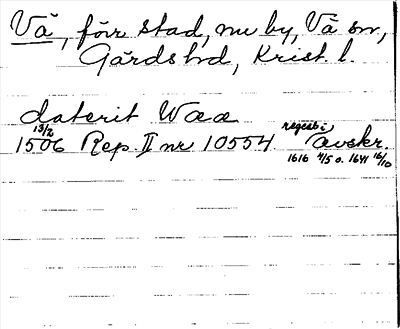 Vä, förr stad, nu by, Vä sn,
Gärds hd, Krist. l.
daterit Wææ
13/2
1506 Rep. II nr 10554 regest i avskr.
1616 4/5 o. 1641 16/10